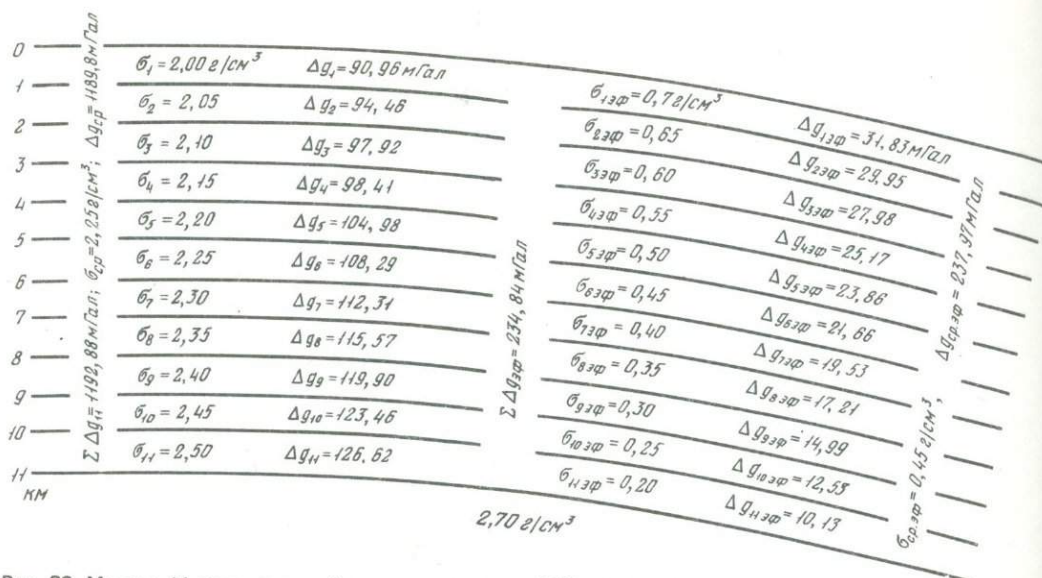 0
1
2
3
4
5
6
7
8
9
10
11
км
ΣΔg₁₁=1192,88мГал; σср=2,25г/см³; Δgср=1189,8мГал
σ₁=2,00г/см³ Δg₁=90,96мГал
σ₂=2,05 Δg₂=94,46
σ₃=2,10 Δg₃=97,92
σ₄=2,15 Δg₄=98,41
σ₅=2,20 Δg₅=104,98
σ₆=2,25 Δg₆=108,29
σ₇=2,30 Δg₇=112,31
σ₈=2,35 Δg₈=115,57
σ₉=2,40 Δg₉=119,90
σ₁₀=2,45 Δg₁₀=123,46
σ₁₁=2,50 Δg₁₁=126,62
ΣΔgэф=234,84мГал
σ₁эф=0,7г/см³ Δg₁эф=31,83мГал
σ₂эф=0,65 Δg₂эф=29,95
σ₃эф=0,60 Δg₃эф=27,98
σ₄эф=0,55 Δg₄эф=25,17
σ₅эф=0,50 Δg₅эф=23,86
σ₆эф=0,45 Δg₆эф=21,66
σ₇эф=0,40 Δg₇эф=19,53
σ₈эф=0,35 Δg₈эф=17,21
σ₉эф=0,30 Δg₉эф=14,99
σ₁₀эф=0,25 Δg₁₀эф=12,53
σ₁₁эф=0,20 Δg₁₁эф=10,13
σср.эф=0,45г/см³, Δgср.эф=237,97мГал
2,70г/см³